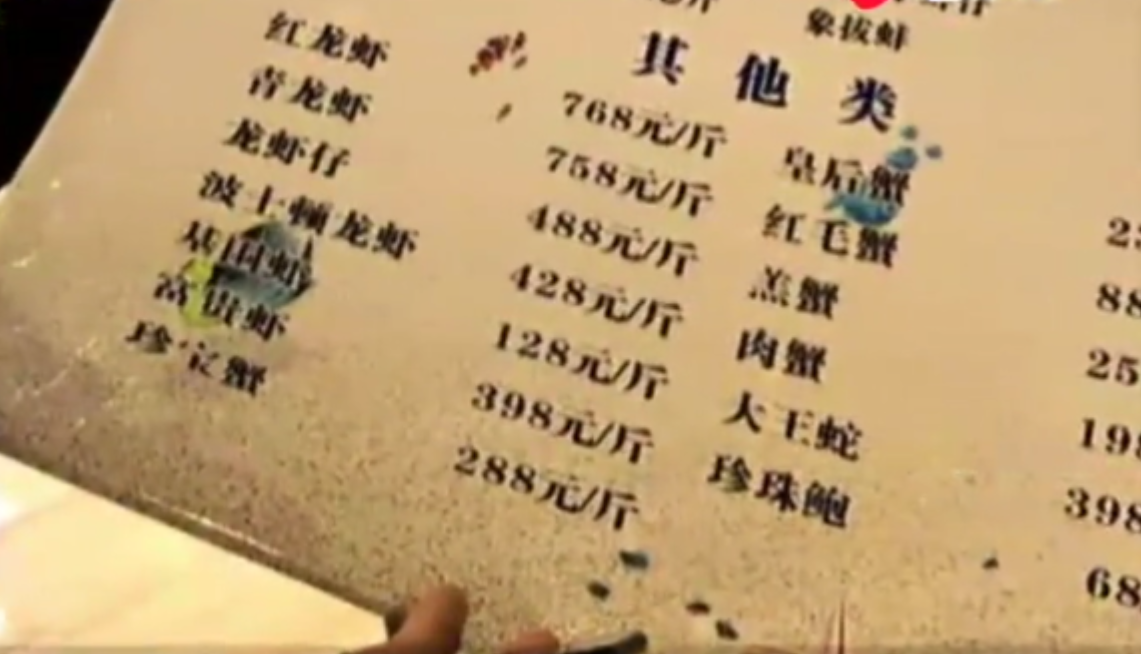 象拔蚌
其他类
红龙虾 768元/斤 皇后蟹 2
青龙虾 758元/斤 红毛蟹 88
龙虾仔 488元/斤 羔蟹 25
波士顿龙虾 428元/斤 肉蟹 19
基围虾 128元/斤 大王蛇 398
富贵虾 398元/斤 珍珠鲍 68
珍宝蟹 288元/斤